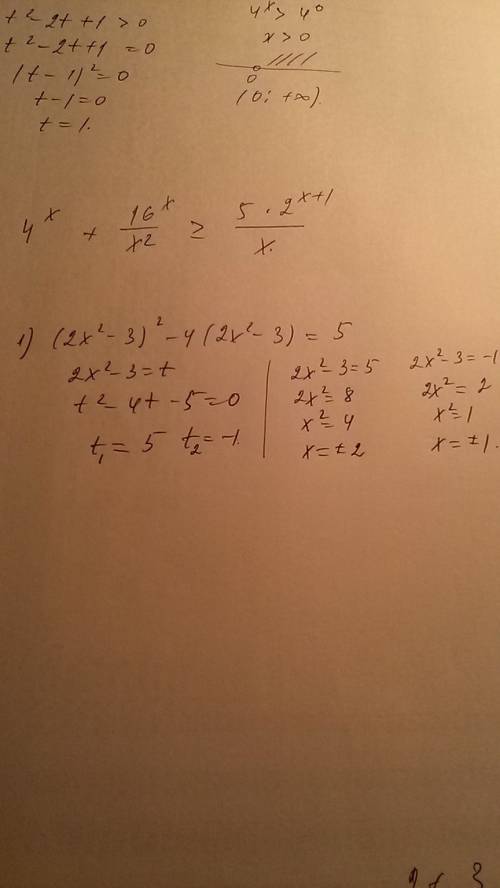 t² - 2t + 1 > 0
t² - 2t + 1 = 0
(t - 1)² = 0
t - 1 = 0
t = 1.
4^x > 4^0
x > 0
0
(0; +∞).
4^x + 16^x / x² ≥ 5 · 2^(x+1) / x.
1) (2x² - 3)² - 4(2x² - 3) = 5
2x² - 3 = t
t² - 4t - 5 = 0
t₁ = 5 t₂ = -1.
2x² - 3 = 5
2x² = 8
x² = 4
x = ± 2
2x² - 3 = -1
2x² = 2
x² = 1
x = ±1.